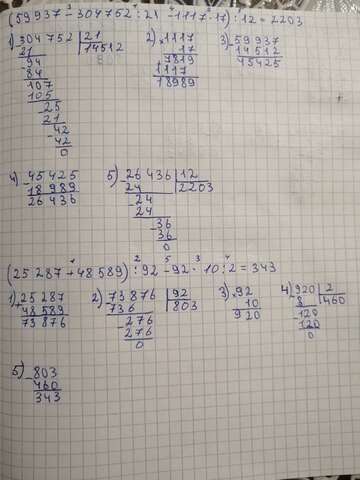 (59937 - 304752 : 21 - 1117 · 17) : 12 = 2203
1) 304752 | 21 2) × 1117 3) - 59937
21 14512 17 14512
- 94 7819 45425
- 84 1117
107 18989
105
- 25
21
- 42
42
0
4) - 45425 5) - 26436 | 12
18989 24 2203
26436 - 24
24
- 36
36
0
(25287 + 48589) : 92 - 92 · 10 : 2 = 343
1) + 25287 2) - 73876 | 92 3) × 92 4) - 920 | 2
48589 736 803 10 8 460
73876 - 276 920 - 120
276 120
0 0
5) - 803
460
343